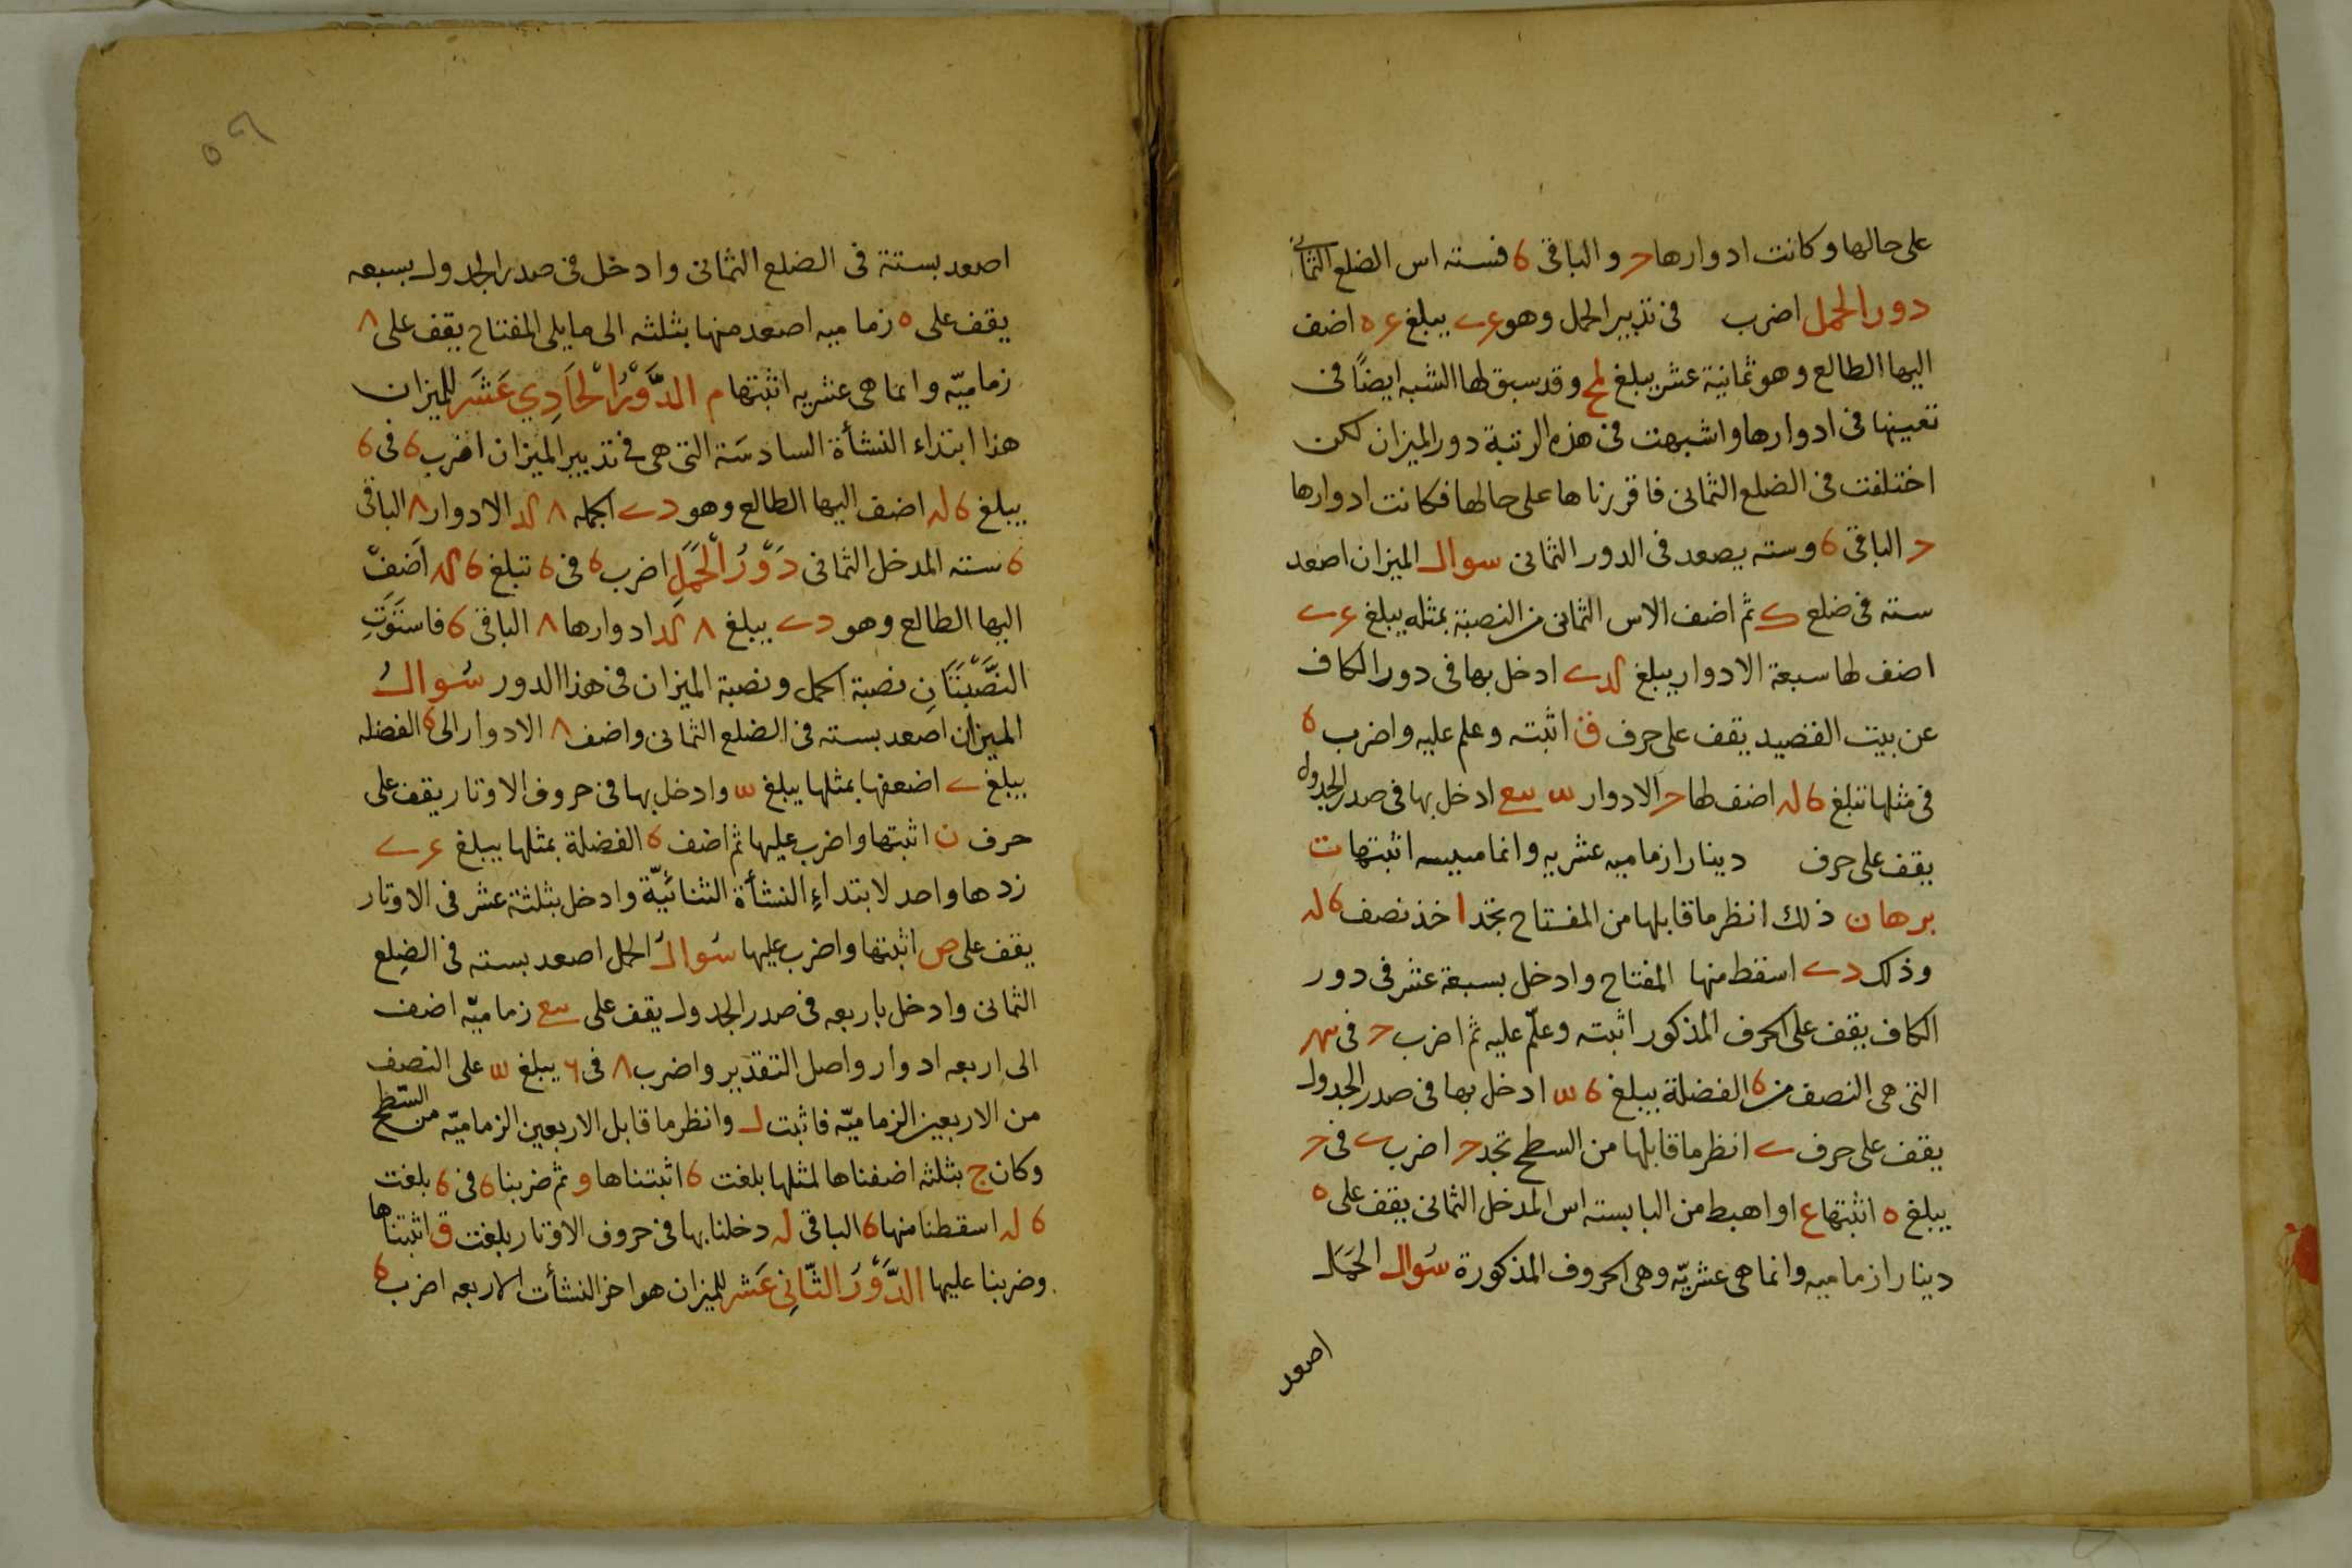 على حالها وكانت ادوارها ح والباقى 6 فسته اس الضلع الثمانى
دور الحمل اضرب فى تدبير الحمل وهو يبلغ اضف
اليها الطالع وهو ثمانية عشر يبلغ لح وقد سبق لها الشبه ايضًا فى
تعيينها فى ادوارها واشبهت فى هذه الرتبة دور الميزان لكن
اختلفت فى الضلع الثمانى فاقررناها على حالها فكانت ادوارها
ح الباقى 6 وسته يصعد فى الدور الثمانى سوال الميزان اصعد
سته فى ضلع ثم اضف الاس الثمانى من النصبة بمثله يبلغ
اضف لها سبعة الادوار يبلغ ادخل بها فى دور الكاف
عن بيت القصيد يقف على حرف ق اثبته وعلم عليه واضرب 6
فى مثلها تبلغ 6 له اضف لها ح الادوار ادخل بها فى صدر الجدول
يقف على حرف دينارا زماميه عشريه وانما اثبتها ت
برهان ذلك انظر ما قابلها من المفتاح تجد ا خذ نصف 6 له
وذلك اسقط منها المفتاح وادخل بسبعة عشر فى دور
الكاف يقف على الحرف المذكور اثبته وعلّم عليه ثم اضرب ح فى
التى هى النصف من 6 الفضلة يبلغ ادخل بها فى صدر الجدول
يقف على حرف ے انظر ما قابلها من السطح تجد ح اضرب ے فى ح
يبلغ ه اثبتها ع او اهبط من البا بسته اس المدخل الثمانى يقف على ه
دينارا زماميه وانما هى عشريّه وهى الحروف المذكورة سوال الحمل
اصعد
٥٩
اصعد بستة فى الضلع الثمانى وادخل فى صدر الجدول بسبعه
يقف على ٥ زماميه اصعد منها بثلثه الى ما يلى المفتاح يقف على ٨
زماميّه وانما هى عشريه اثبتها م الدَّوْرُ الْحَادِي عَشَر للميزان
هذا ابتداء النشأة السادسَة التى هى فى تدبير الميزان اضرب 6 فى 6
يبلغ 6 له اضف اليها الطالع وهو الجمله ٨ الادوار ٨ الباقى
6 سته المدخل الثمانى دَوْرُ الْحَمَلِ اضرب 6 فى 6 تبلغ 6 له اَضِفْ
اليها الطالع وهو يبلغ ٨ ادوارها ٨ الباقى 6 فاستَوَتِ
النَّصْبَتَانِ نصبة الحمل ونصبة الميزان فى هذا الدور سُوالُ
الميزان اصعد بسته فى الضلع الثمانى واضف ٨ الادوار الى 6 الفضله
يبلغ ے اضعفها بمثلها يبلغ وادخل بها فى حروف الاوتار يقف على
حرف ن اثبتها واضرب عليها ثم اضف 6 الفضلة بمثلها يبلغ
زدها واحد لابتداءِ النشأة الثنائيّة وادخل بثلثة عشر فى الاوتار
يقف على ص اثبتها واضرب عليها سُوالُ الحمل اصعد بسته فى الضِلع
الثمانى وادخل باربعه فى صدر الجدول يقف على زماميّه اضف
الى اربعه ادوار واصل التقدير واضرب ٨ فى ٦ يبلغ على النصف
من الاربعين الزماميّه فاثبت ل وانظر ما قابل الاربعين الزماميّه من السّطح
وكان ج بثلثه اضفناها لمثلها بلغت 6 اثبتناها و ثم ضربنا 6 فى 6 بلغت
6 له اسقطنا منها 6 الباقى له دخلنا بها فى حروف الاوتار بلغت ق اثبتناها
وضربنا عليها الدَّوْرُ الثّانِي عَشر للميزان هو اخر النشأت الاربعه اضرب 6